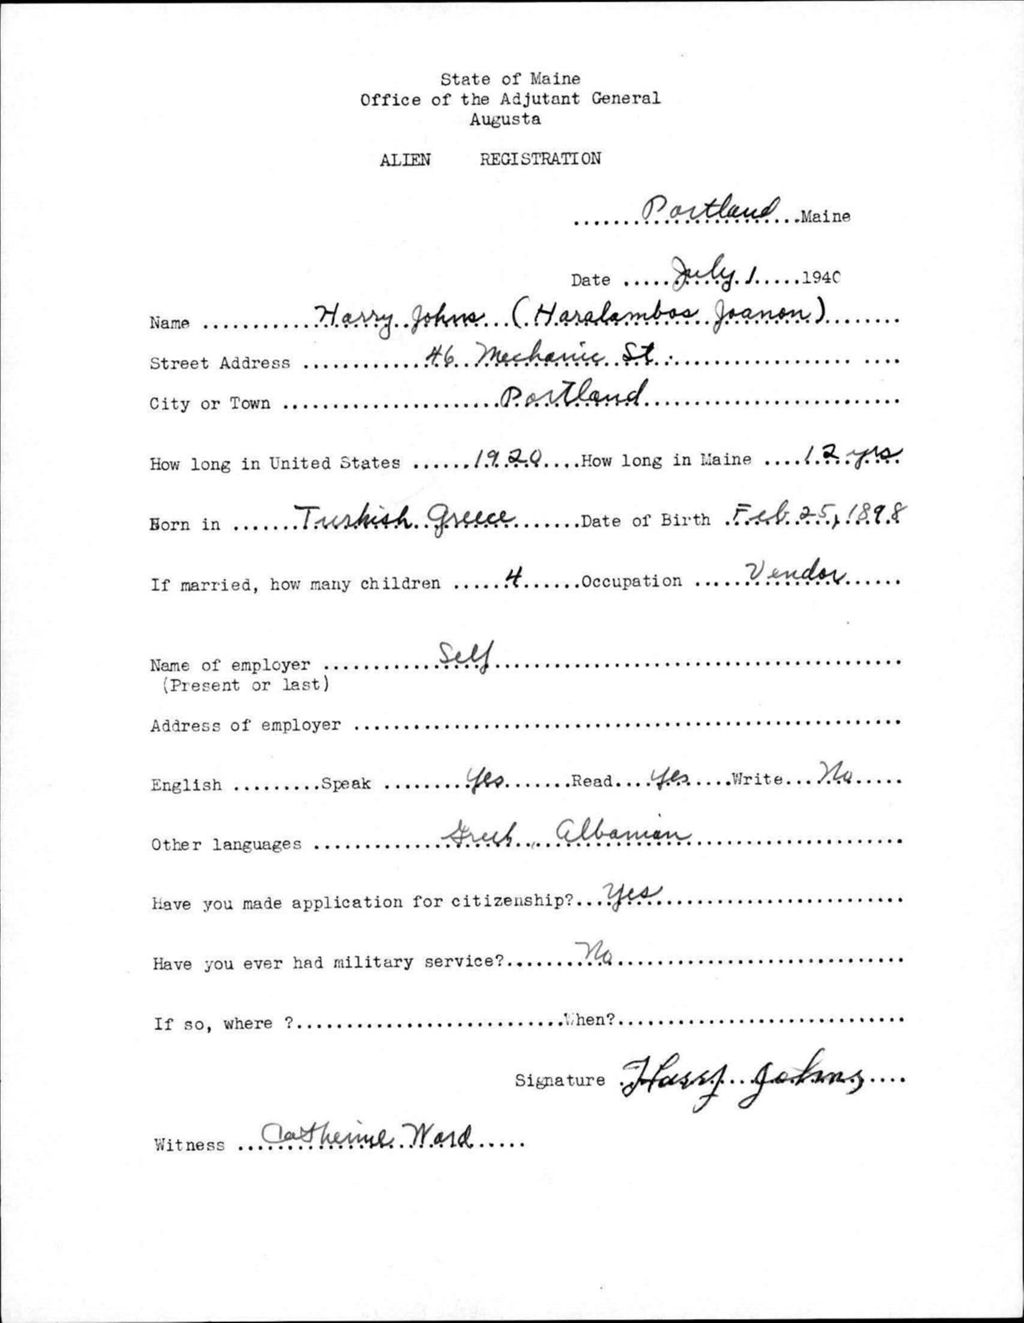 State of Maine
Office of the Adjutant General
Augusta
ALIEN REGISTRATION
Portland Maine
Date July 1 1940
Name Harry Johns (Haralambos Joanon)
Street Address 46 Mechanic St.
City or Town Portland
How long in United States 1920 How long in Maine 12 yrs
Born in Turkish Greece Date of Birth Feb 25, 1898
If married, how many children 4 Occupation Vendor
Name of employer Self
(Present or last)
Address of employer
English Speak Yes Read Yes Write No
Other languages Greek, Albanian
Have you made application for citizenship? Yes
Have you ever had military service? No
If so, where ? When?
Signature Harry Johns
Witness Catherine Ward